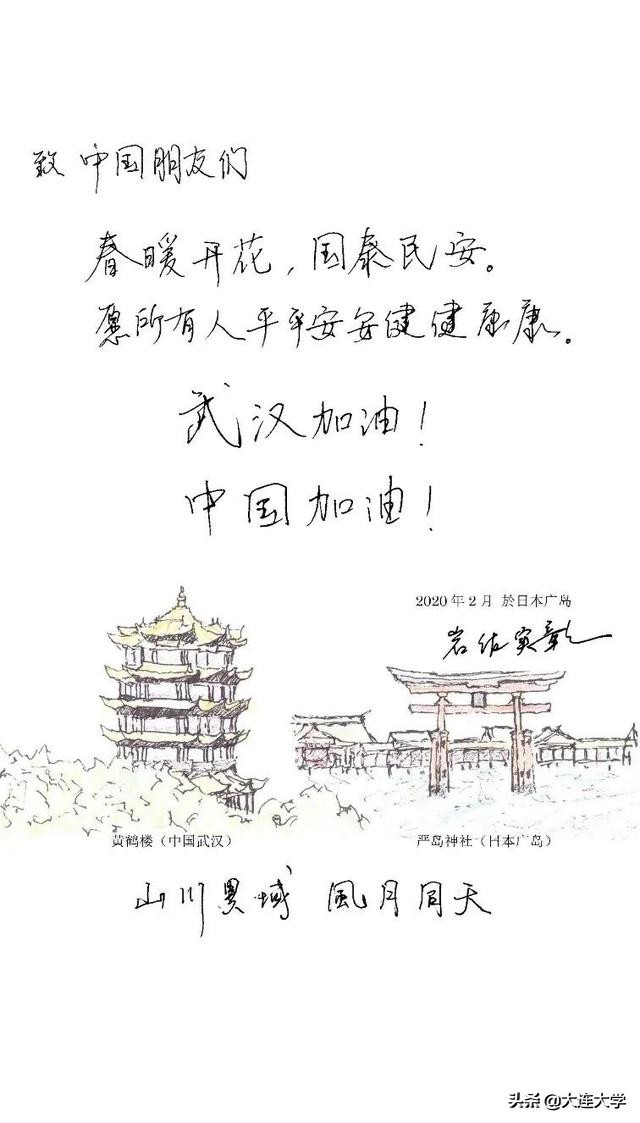 致 中国朋友们
春暖开花，国泰民安。
愿所有人平平安安健健康康。
武汉加油！
中国加油！
2020年2月 於日本广岛
岩佐实彰
黄鹤楼（中国武汉）
严岛神社（日本广岛）
山川異域 風月同天
头条 @大连大学